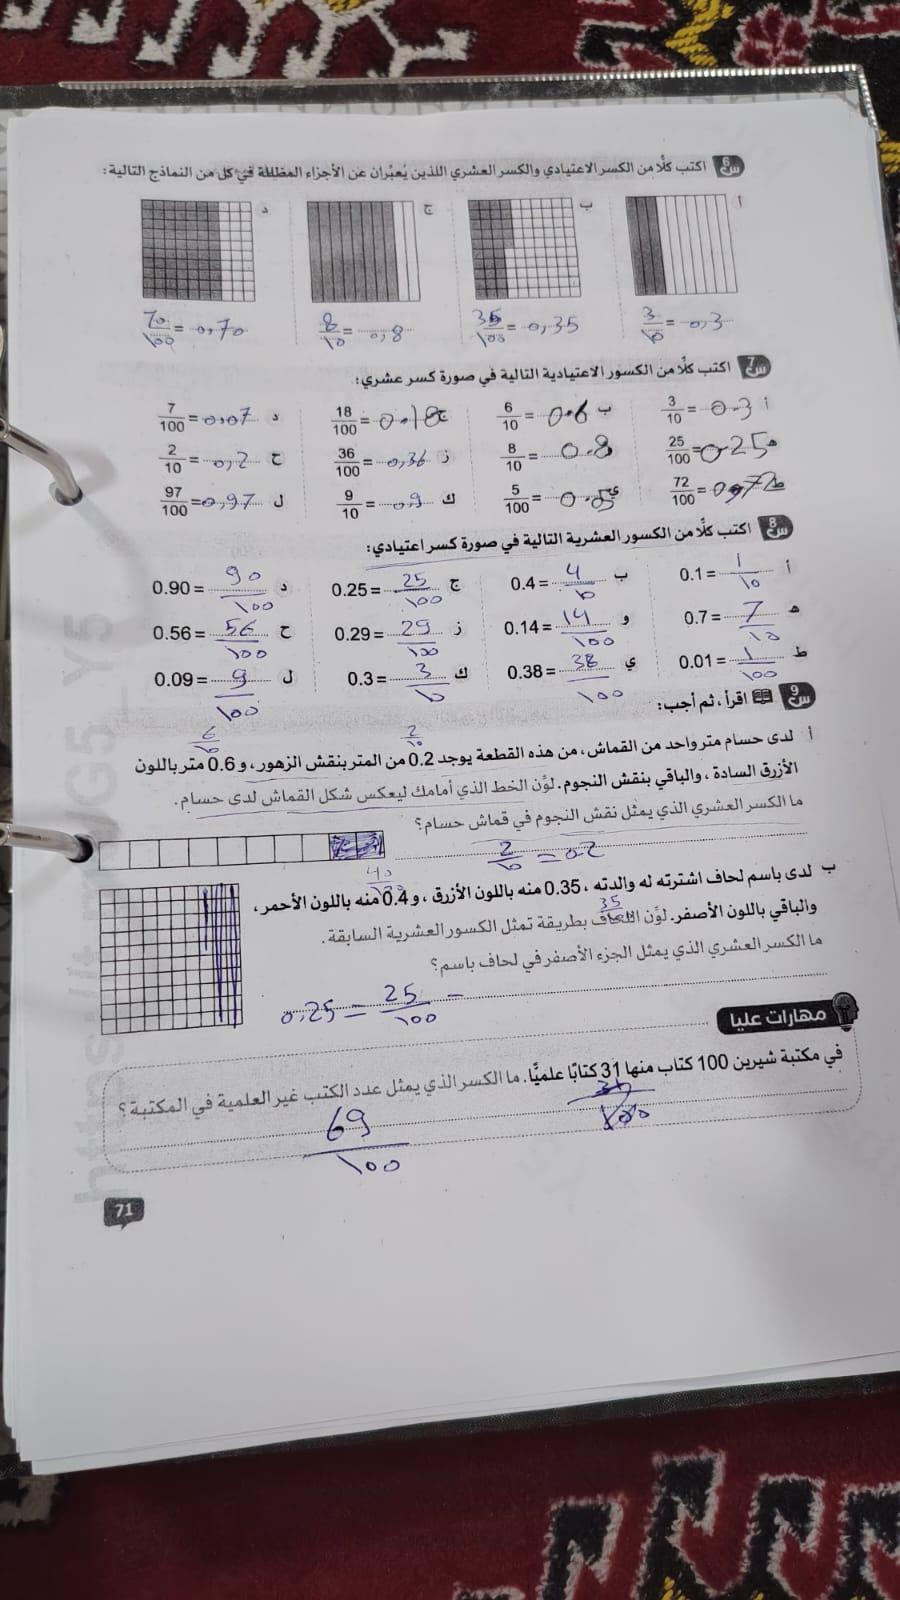 س6 اكتب كلًّا من الكسر الاعتيادي والكسر العشري اللذين يُعبِّران عن الأجزاء المظللة في كل من النماذج التالية:
أ ب ج د
3/10 = 0,3 35/100 = 0,35 8/10 = 0,8 70/100 = 0,70
س7 اكتب كلًّا من الكسور الاعتيادية التالية في صورة كسر عشري:
أ 3/10 = 0.3 ب 6/10 = 0.6 ج 18/100 = 0.18 د 7/100 = 0,07
ه 25/100 = 0.25 8/10 = 0.8 ز 36/100 = 0,36 ح 2/10 = 0,2
72/100 = 0,72 ي 5/100 = 0.05 ك 9/10 = 0,9 ل 97/100 = 0,97
س8 اكتب كلًّا من الكسور العشرية التالية في صورة كسر اعتيادي:
أ 0.1 = 1/10 ب 0.4 = 4/10 ج 0.25 = 25/100 د 0.90 = 90/100
ه 0.7 = 7/10 و 0.14 = 14/100 ز 0.29 = 29/100 ح 0.56 = 56/100
ط 0.01 = 1/100 ي 0.38 = 38/100 ك 0.3 = 3/10 ل 0.09 = 9/100
س9 اقرأ، ثم أجب:
2/10 6/10
أ لدى حسام متر واحد من القماش، من هذه القطعة يوجد 0.2 من المتر بنقش الزهور، و 0.6 متر باللون
الأزرق السادة، والباقي بنقش النجوم. لوِّن الخط الذي أمامك ليعكس شكل القماش لدى حسام.
ما الكسر العشري الذي يمثل نقش النجوم في قماش حسام؟
2/10 = 0.2
40/100
ب لدى باسم لحاف اشترته له والدته، 0.35 منه باللون الأزرق، و 0.4 منه باللون الأحمر،
35
والباقي باللون الأصفر. لوِّن اللحاف بطريقة تمثل الكسور العشرية السابقة.
ما الكسر العشري الذي يمثل الجزء الأصفر في لحاف باسم؟
0,25 = 25/100
مهارات عليا
في مكتبة شيرين 100 كتاب منها 31 كتابًا علميًّا. ما الكسر الذي يمثل عدد الكتب غير العلمية في المكتبة؟
31/100
69/100
71